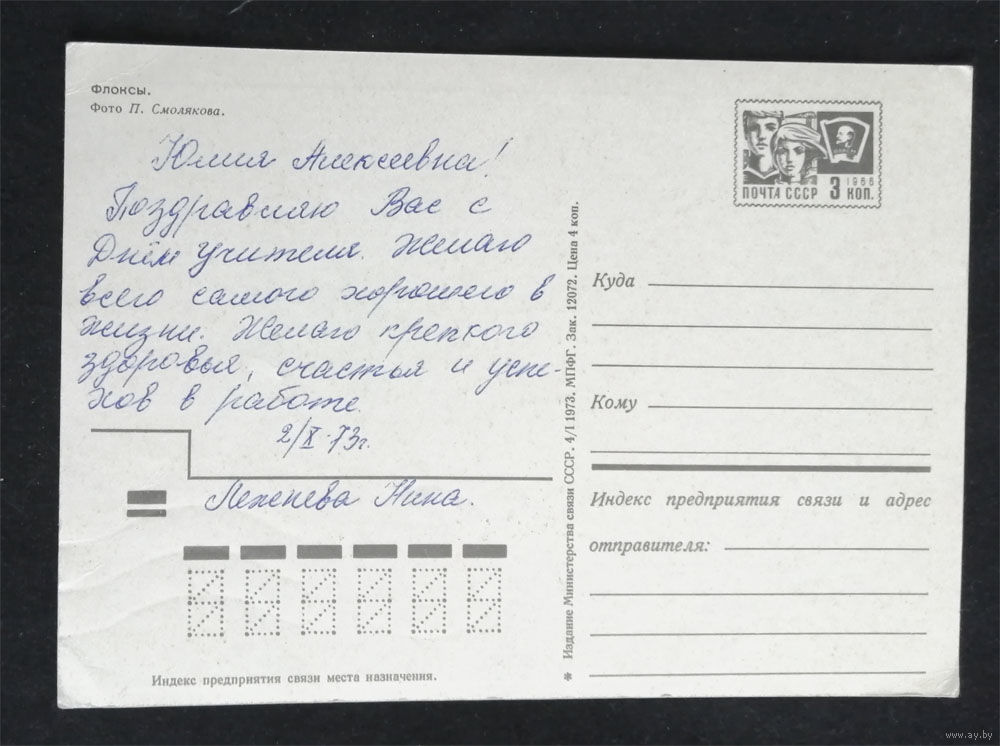 Флоксы.
Фото П. Смолякова.
Юлия Алексеевна!
Поздравляю Вас с
Днём Учителя. Желаю
всего самого хорошего в
жизни. Желаю крепкого
здоровья, счастья и успе-
хов в работе.
2/X-73г.
Лежепева Нина.
Индекс предприятия связи места назначения.
* Издание Министерства связи СССР. 4/I 1973. МПФГ. Зак. 12072. Цена 4 коп.
1966
ПОЧТА СССР 3 КОП.
Куда
Кому
Индекс предприятия связи и адрес
отправителя:
www.ay.by